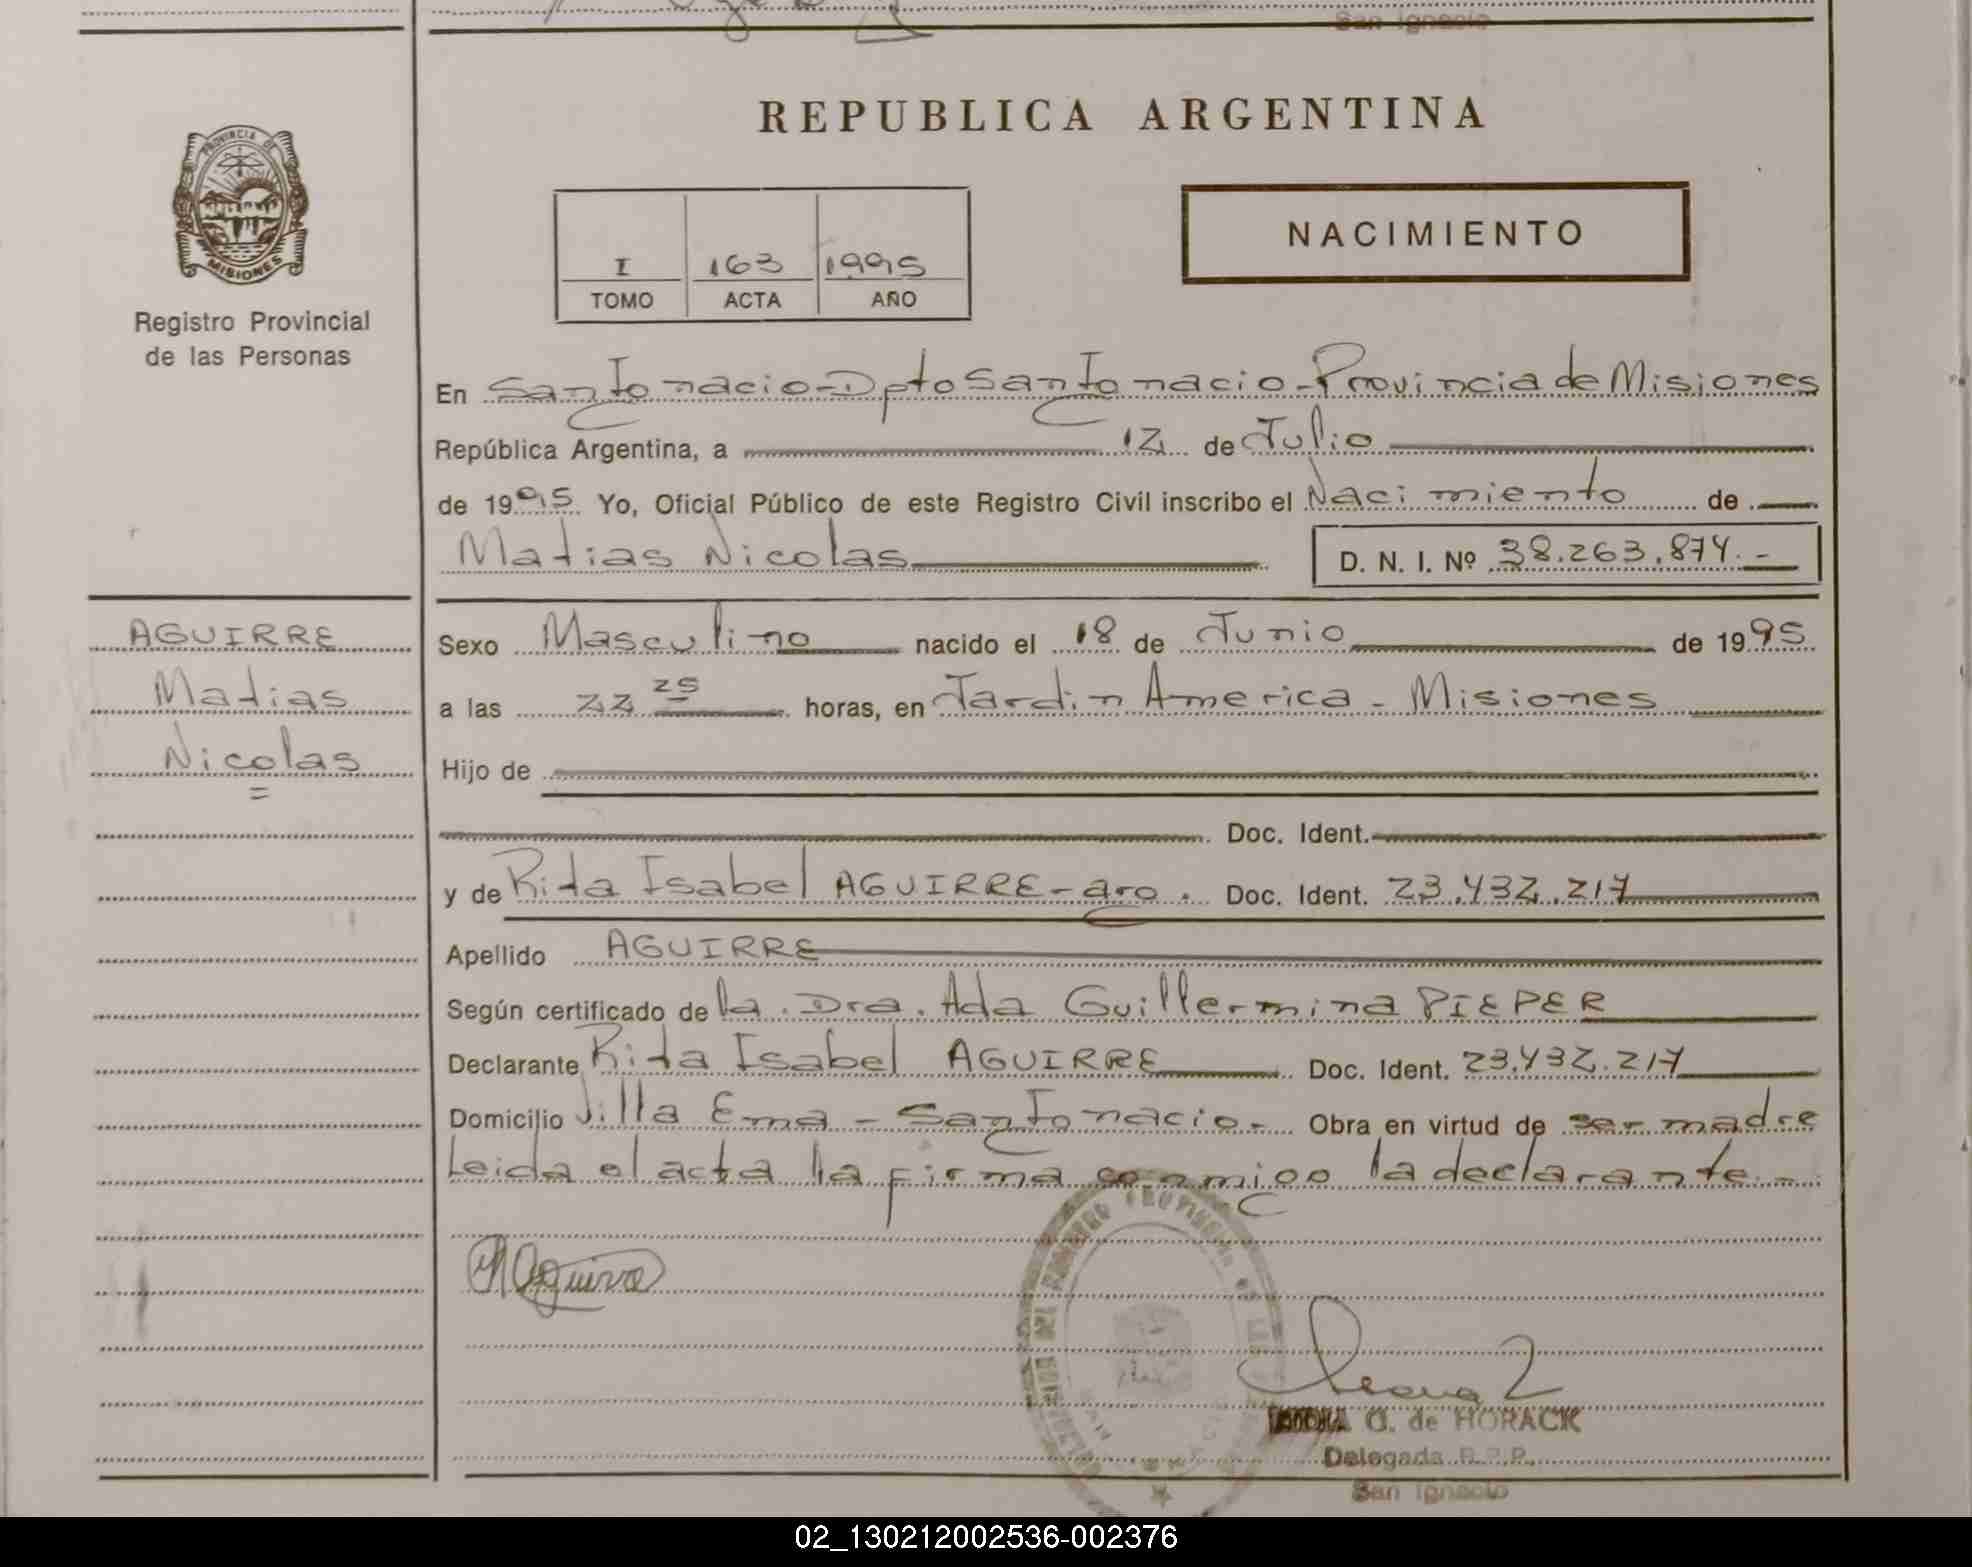 San Ignacio
REPUBLICA ARGENTINA
PROVINCIA DE
MISIONES
Registro Provincial
de las Personas
I 163 1995
TOMO ACTA AÑO
NACIMIENTO
En San Ignacio - Dpto San Ignacio - Provincia de Misiones
República Argentina, a 12 de Julio
de 1995 Yo, Oficial Público de este Registro Civil inscribo el Nacimiento de
Matias Nicolas D. N. I. Nº 38.263.874.-
AGUIRRE
Matias
Nicolas
Sexo Masculino nacido el 18 de Junio de 1995
a las 22 25 horas, en Jardin America - Misiones
Hijo de
Doc. Ident.
y de Rita Isabel AGUIRRE - arg. Doc. Ident. 23.432.217
Apellido AGUIRRE
Según certificado de la Dra. Ada Guillermina PIEPER
Declarante Rita Isabel AGUIRRE Doc. Ident. 23.432.217
Domicilio Villa Ema - San Ignacio.- Obra en virtud de ser madre
Leida el acta la firma conmigo la declarante.-
R Aguirre
G. de HORACK
Delegada R.P.P.
San Ignacio
02_130212002536-002376